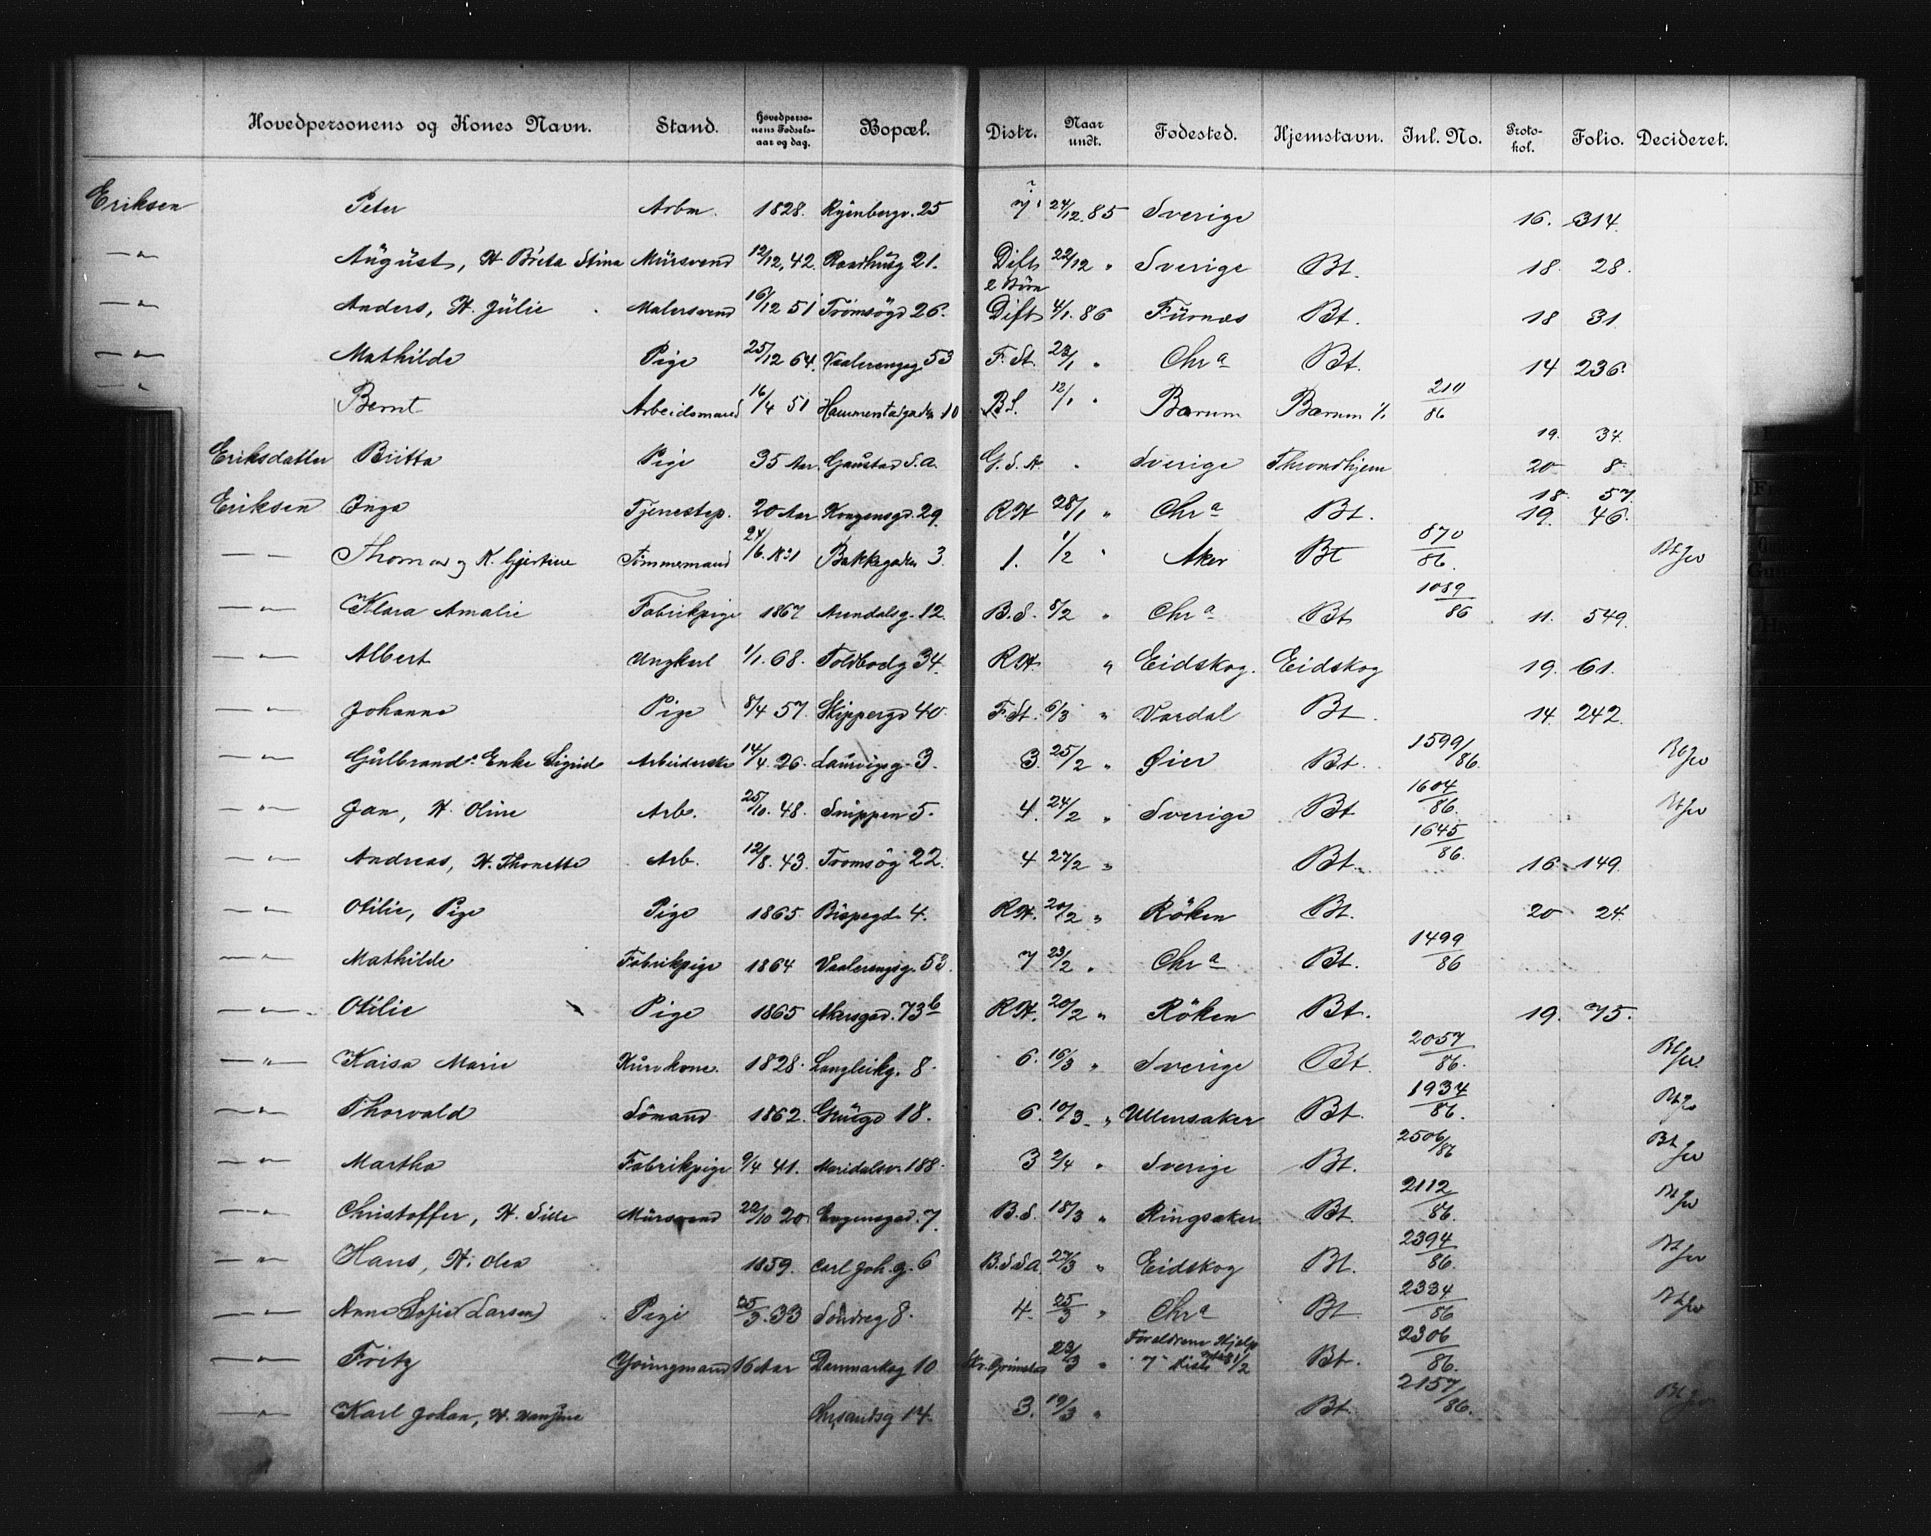 Hovedpersonens og Kones Navn. Stand. Hovedpersonens Fødselsaar og dag. Bopæl. Distr. Naar undt. Fødested. Hjemstavn. Inl. No. Protokol. Folio. Decideret.
Eriksen Peter Arbm. 1828. Ryenbergv. 25 7 24/12. 85 Sverige 16. 314.
—"— August, H. Brita Stina Mürsvend 12/12, 42. Raadhusg 21. Dift 22/12 " Sverige Bt. 18. 28.
2 Börn
—"— Anders, H. Julie Malersvend 16/12 51 Tromsögd 26. Dift 4/1. 86 Furnes Bt. 18 31.
—"— Mathilde Pige 25/12 64. Vaalerengsg. 53 F. St. 23/1 " Chra Bt. 14 236.
—"— Bernt Arbeidsmand 16/4 51 10 B.S. 12/1 " Bærum Bærum 210/86
19. 34.
Eriksdatter Britta Pige 35 Aar. Gaustad S.A. G.S.A. " Sverige Throndhjem 20 8
18. 57.
Eriksen Inga Tjenestep. 20 Aar Kongensgd. 29. RH 28/1 " Chra Bt. 19. 46.
—"— Thomas og K. Gjertine Tømmermand 27/6. Bakkegaden 3. 1. 1/2 " Aker Bt 870/86. Bt
—"— Klara Amalie Fabrikpige 1867 Arendalsg. 12. B.S. 8/2 " Chra Bt 1089/86 11. 549.
—"— Albert Ungkarl 1/1. 68. Toldbodg 34. RH. " Eidskog. Eidskog 19. 61.
—"— Johanne Pige 8/4 57. Skippergd 40. F. St. 6/3 " Vardal Bt. 14. 242.
—"— Gulbrands Enke Sigrid Arbeiderske 14/4. 26. Laurvigsg. 3. 3. 25/2 " Øier Bt. 1599/86. Bt
—"— Jan, H. Oline Arb. 25/10. 48. Snippen 5. 4. 24/2 " Sverige Bt 1604/86. Bt
—"— Andreas, H. Thonette Arb. 12/8. 43. Tromsög 22. 4 27/2 " Bt. 1645/86. 16. 149.
—"— Otilie, Pige Pige 1865 Bispegd. 4. RH. 20/2 " Röken Bt. 20 24.
—"— Mathilde Fabrikpige 1864 Vaalerengsg. 53. 7 23/2 " Chra Bt. 1499/86
—"— Otilie Pige 1865 Akersgad. 73b RH. 20/2 " Röken Bt. 19. 75.
—"— Kaisa Marie Kurvkone. 1828. Langleikg. 8. 6. 16/3 " Sverige Bt. 2057/86. Bt
—"— Thorvald Sömand 1862. Grügd 18. 6. 10/3. " Ullensaker Bt. 1934/86. Bt
—"— Martha Fabrikpige 9/4 41. Maridalsv. 188. 3 2/4 " Sverige Bt. 2506/86 Bt
—"— Christoffer, H. Sille Mürsvend 22/10 20 Engensgad. 7. B.S. 18/3 " Ringsaker Bt. 2112/86. Bt
—"— Hans, H. Olea 1859. Carl Joh. g. 6 B.S.S.A. 27/3 " Eidskog Bt. 2394/86. Bt
—"— Anne Sofie (Larsen) Pige 25/3. 33 Söndreg 8. 4. 25/3 " Chra Bt. 2334/86 Bt
—"— Fritz Youngmand 16 Aar Danmarksg 10 23/3 " Forældrene Hjelp Bt. 2306/86.
—"— Karl Johan, H. Chrsandsg 14. 3. 19/3 " Bt. 2157/86. Bt